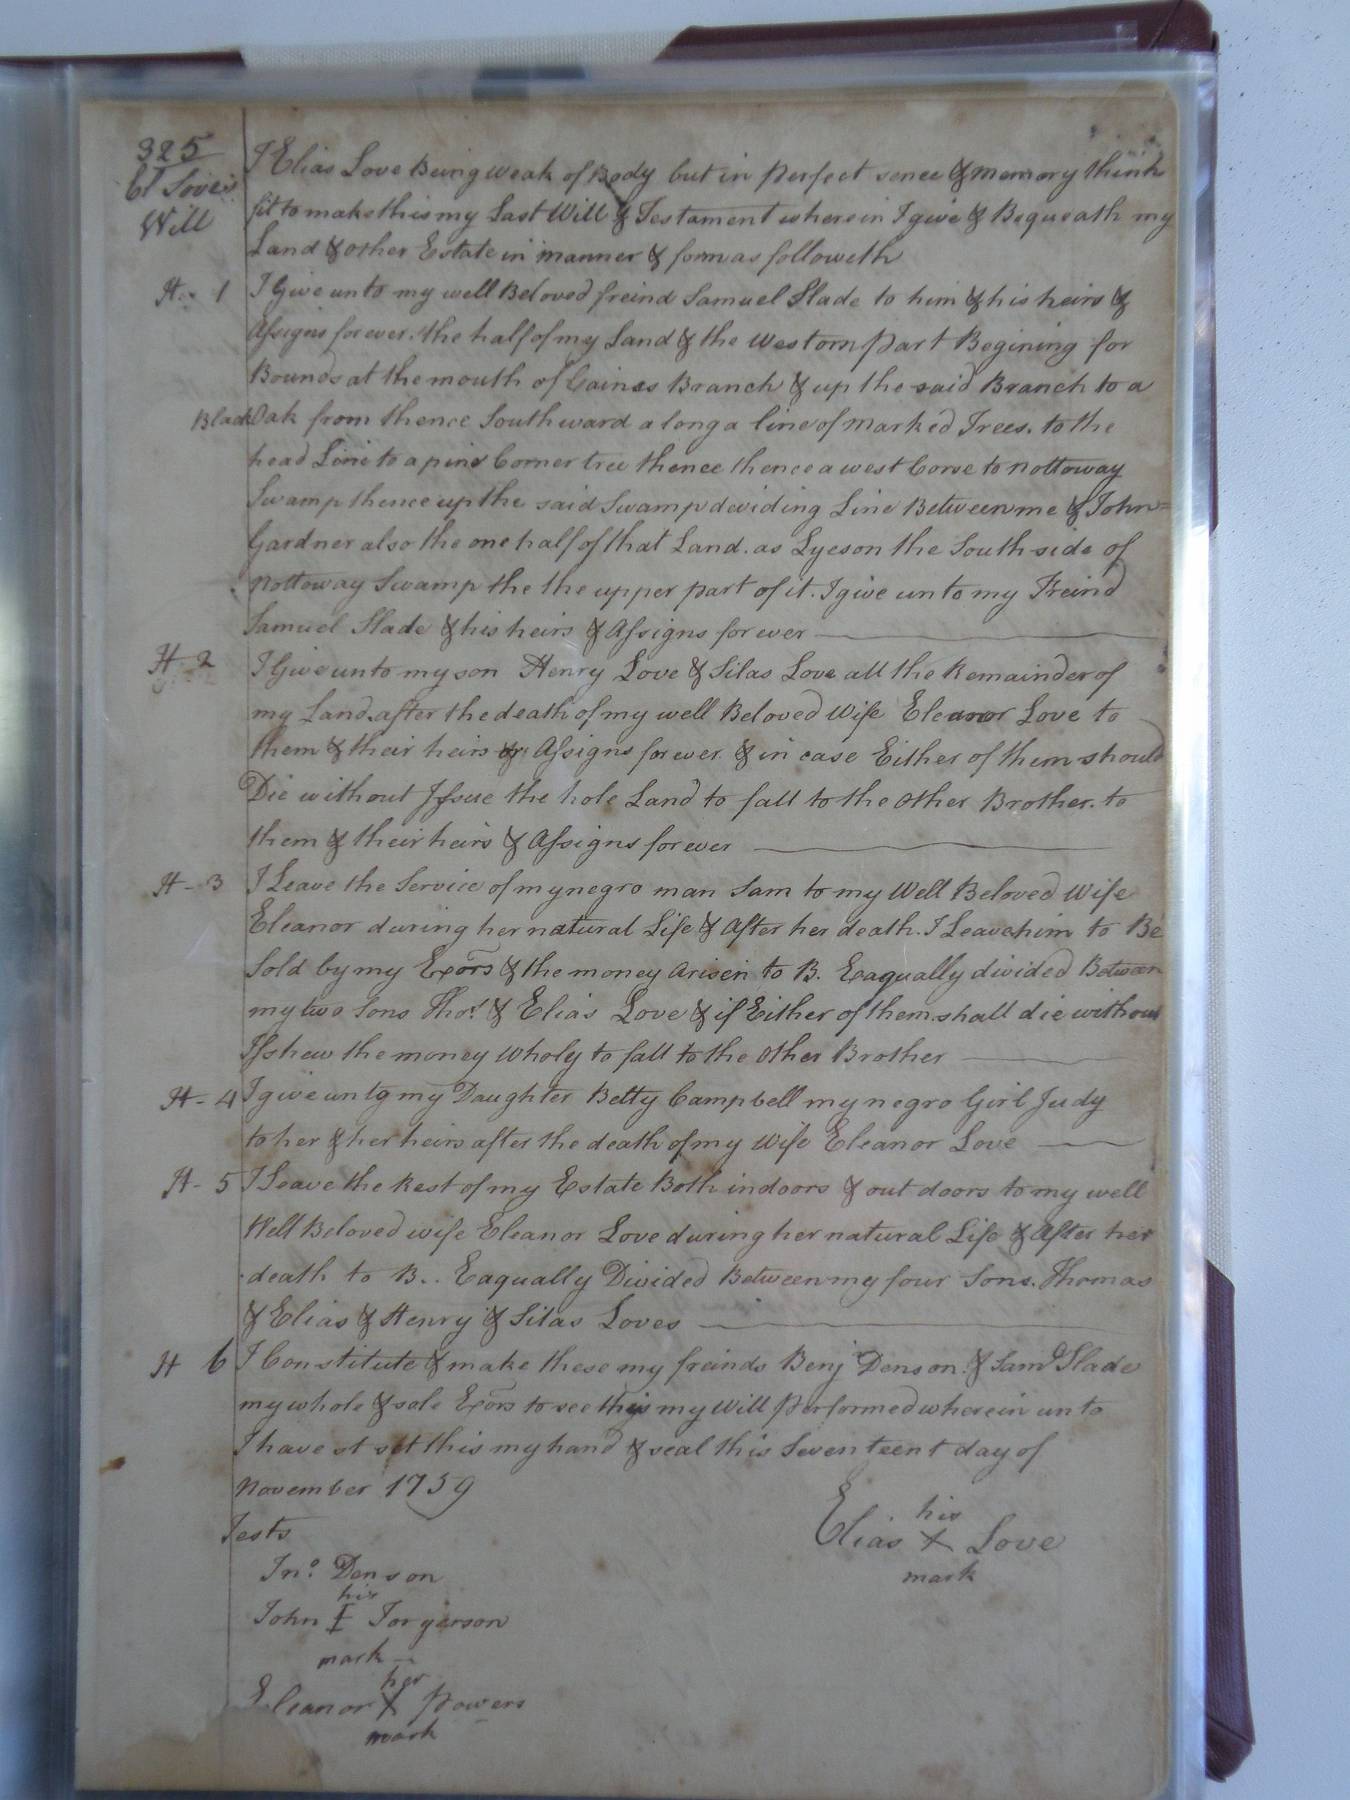 325
El Love's
Will
I Elias Love Being weak of Body but in perfect sence & memory think
fit to make this my Last Will & Testament wherein I give & Bequeath my
Land & other Estate in manner & form as followeth
It - 1 I Give unto my well Beloved freind Samuel Slade to him & his heirs &
Assigns for ever. the half of my Land & the Western part Begining for
Bounds at the mouth of Cains Branch & up the said Branch to a
Black Oak from thence Southward along a line of marked Trees. to the
head Line to a pine Corner tree thence thence a west Corse to nottoway
Swamp thence up the said Swamp deviding Line Between me & John=
Gardner also the one half of that Land. as Lyes on the South side of
nottoway Swamp the the upper part of it. I give unto my Freind
Samuel Slade & his heirs & Assigns for ever
It - 2 I Give unto my son Henry Love & Silas Love all the Remainder of
my Land. after the death of my well Beloved Wife Eleanor Love to
them & their heirs & Assigns for ever & in case Either of them should
Die without Issue the hole Land to fall to the other Brother. to
them & their heirs & Assigns for ever
It - 3 I Leave the Service of my negro man Sam to my Well Beloved Wife
Eleanor during her natural Life & After her death. I Leave him to Be
Sold by my Exors & the money arisen to B. Eaqually divided Between
my two Sons Thos. & Elias Love & if Either of them shall die without
Isshew the money wholy to fall to the other Brother
It - 4 I give unto my Daughter Betty Campbell my negro Girl Judy
to her & her heirs after the death of my Wife Eleanor Love
It - 5 I Leave the Rest of my Estate Both indoors & out doors to my well
Well Beloved wife Eleanor Love during her natural Life & After her
death to B.. Eaqually Divided Between my four Sons. Thomas
& Elias & Henry & Silas Loves
It 6 I Constitute & make these my freinds Benj Denson. & Saml Slade
my whole & sole Exors to see this my Will performed wherein unto
I have st set this my hand & seal this Seventeent day of
November 1759
Tests
his
Elias X Love
mark
Jno. Denson
his
John I Jorgerson
mark
her
Eleanor X Powers
mark